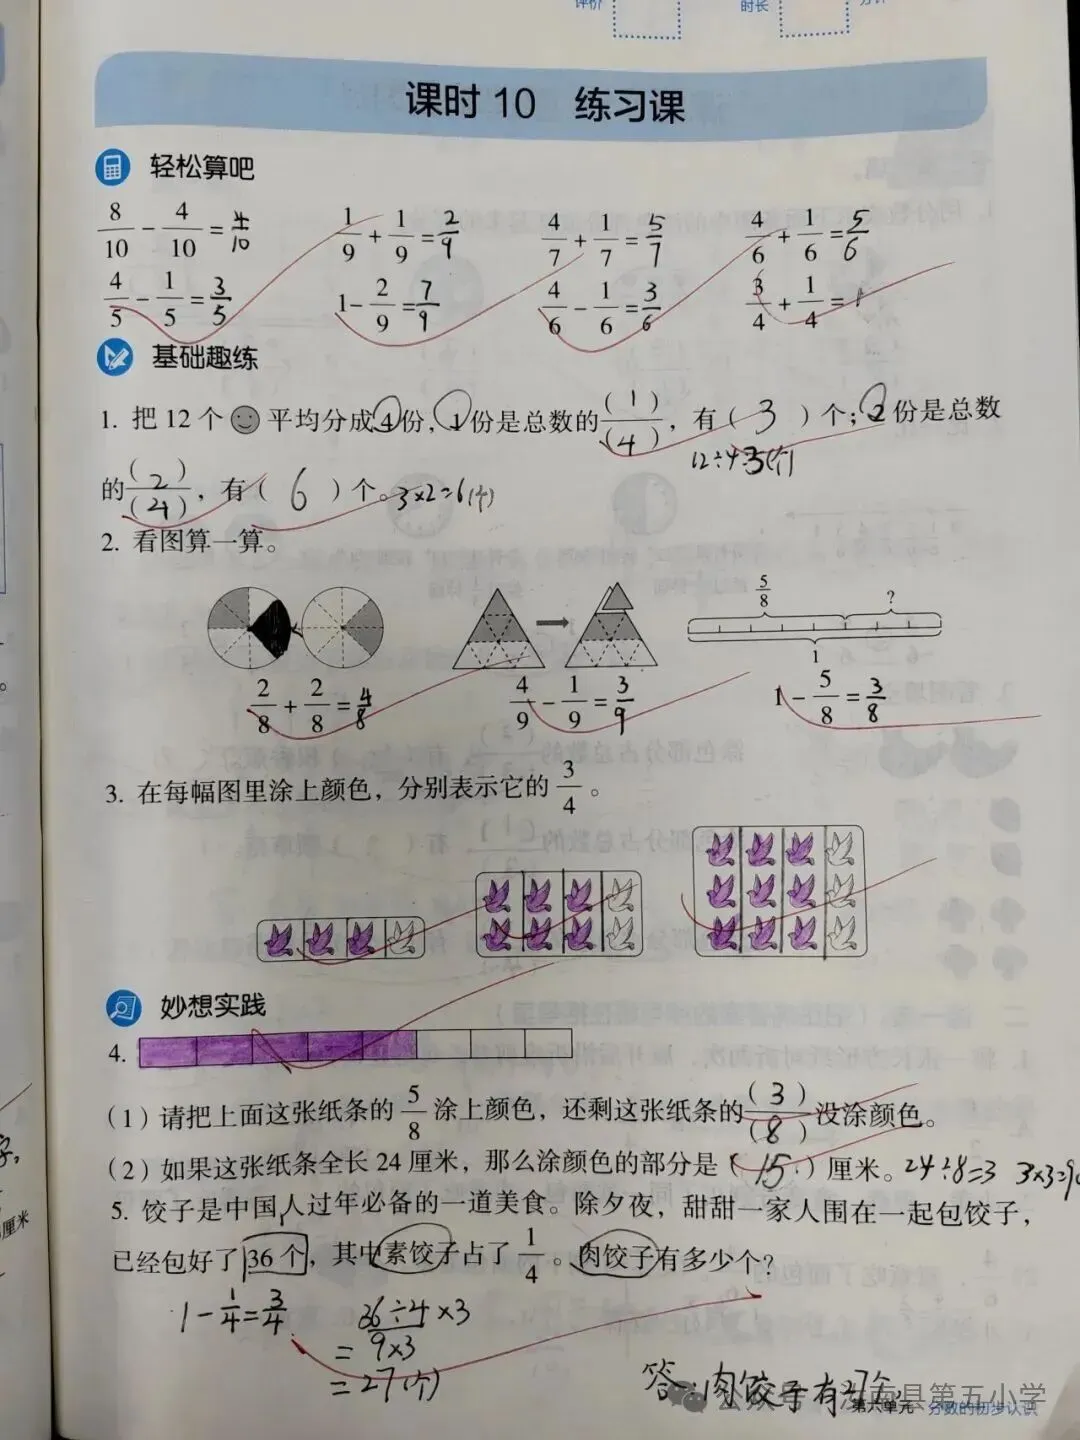 评价
时长
课时 10 练习课
轻松算吧
8/10 - 4/10 = 4/10 1/9 + 1/9 = 2/9 4/7 + 1/7 = 5/7 4/6 + 1/6 = 5/6
4/5 - 1/5 = 3/5 1 - 2/9 = 7/9 4/6 - 1/6 = 3/6 3/4 + 1/4 = 1
基础趣练
1. 把 12 个 平均分成 4 份，1 份是总数的 (1)/(4)，有（ 3 ）个；2 份是总数
12÷4=3(个)
的 (2)/(4)，有（ 6 ）个。3×2=6(个)
2. 看图算一算。
5/8 ?
1
2/8 + 2/8 = 4/8 4/9 - 1/9 = 3/9 1 - 5/8 = 3/8
3. 在每幅图里涂上颜色，分别表示它的 3/4 。
妙想实践
4.
（1）请把上面这张纸条的 5/8 涂上颜色，还剩这张纸条的 (3)/(8) 没涂颜色。
（2）如果这张纸条全长 24 厘米，那么涂颜色的部分是（ 15 ）厘米。24÷8=3 3×3=9
5. 饺子是中国人过年必备的一道美食。除夕夜，甜甜一家人围在一起包饺子，
厘米
已经包好了 36 个，其中素饺子占了 1/4 。肉饺子有多少个？
1 - 1/4 = 3/4 36÷4×3
= 9×3
= 27(个)
答：肉饺子有27个
公众号 · 汝南县第五小学
第六单元 分数的初步认识